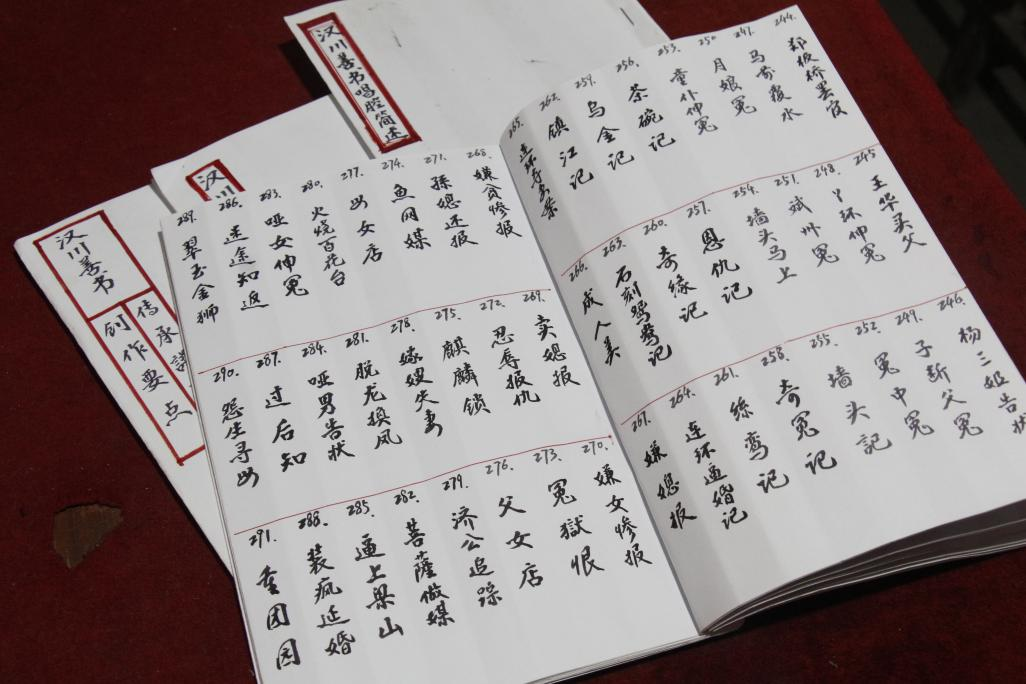 汉川善书唱腔简述
汉川
汉川善书
传承
创作要点
244. 郑板桥罢官
245. 王华买父
246. 杨三姐告状
247. 马前覆水
248. 丫环伸冤
249. 子断父冤
250 月娘冤
251. 斌州冤
252. 冤中冤
253. 童仆伸冤
254. 墙头马上
255. 墙头記
256. 茶碗记
257. 恩仇记
258. 奇冤记
259. 乌金记
260. 奇缘记
261. 丝鸾记
262. 镇江记
263. 石刻鸳鸯记
264. 连环逼婚记
265. 连环
266. 成人美
267. 嫌媳报
268. 嫌贫惨报
269. 卖媳报
270. 嫌女惨报
271. 孫媳还报
272. 忍辱报仇
273. 冤獄恨
274. 鱼网媒
275. 麒麟锁
276. 父女店
277. 母女店
278. 嫁嫂失妻
279. 济公追踪
280. 火烧百花台
281. 脱龙换凤
282. 菩薩做媒
283. 哑女伸冤
284. 哑男告状
285. 逼上梁山
286. 迷途知返
287. 过后知
288. 装疯延婚
289. 翠玉金狮
290. 怨生寻母
291. 重团园